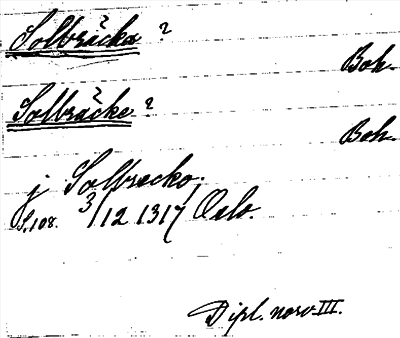 Solbräcka ?
Boh.
Solbräcke ?
Boh.
j Solbrecko,
S. 108. 3/12 1317, Oslo.
Dipl. norv. III.